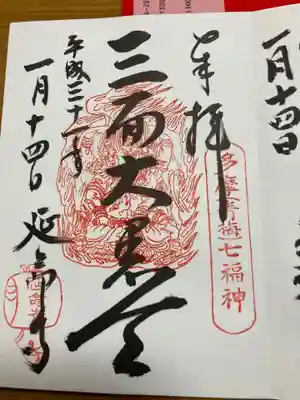 奉拝
多摩青梅七福神
三面大黒天
平成三十一年
一月十四日
延命寺
一月十四日